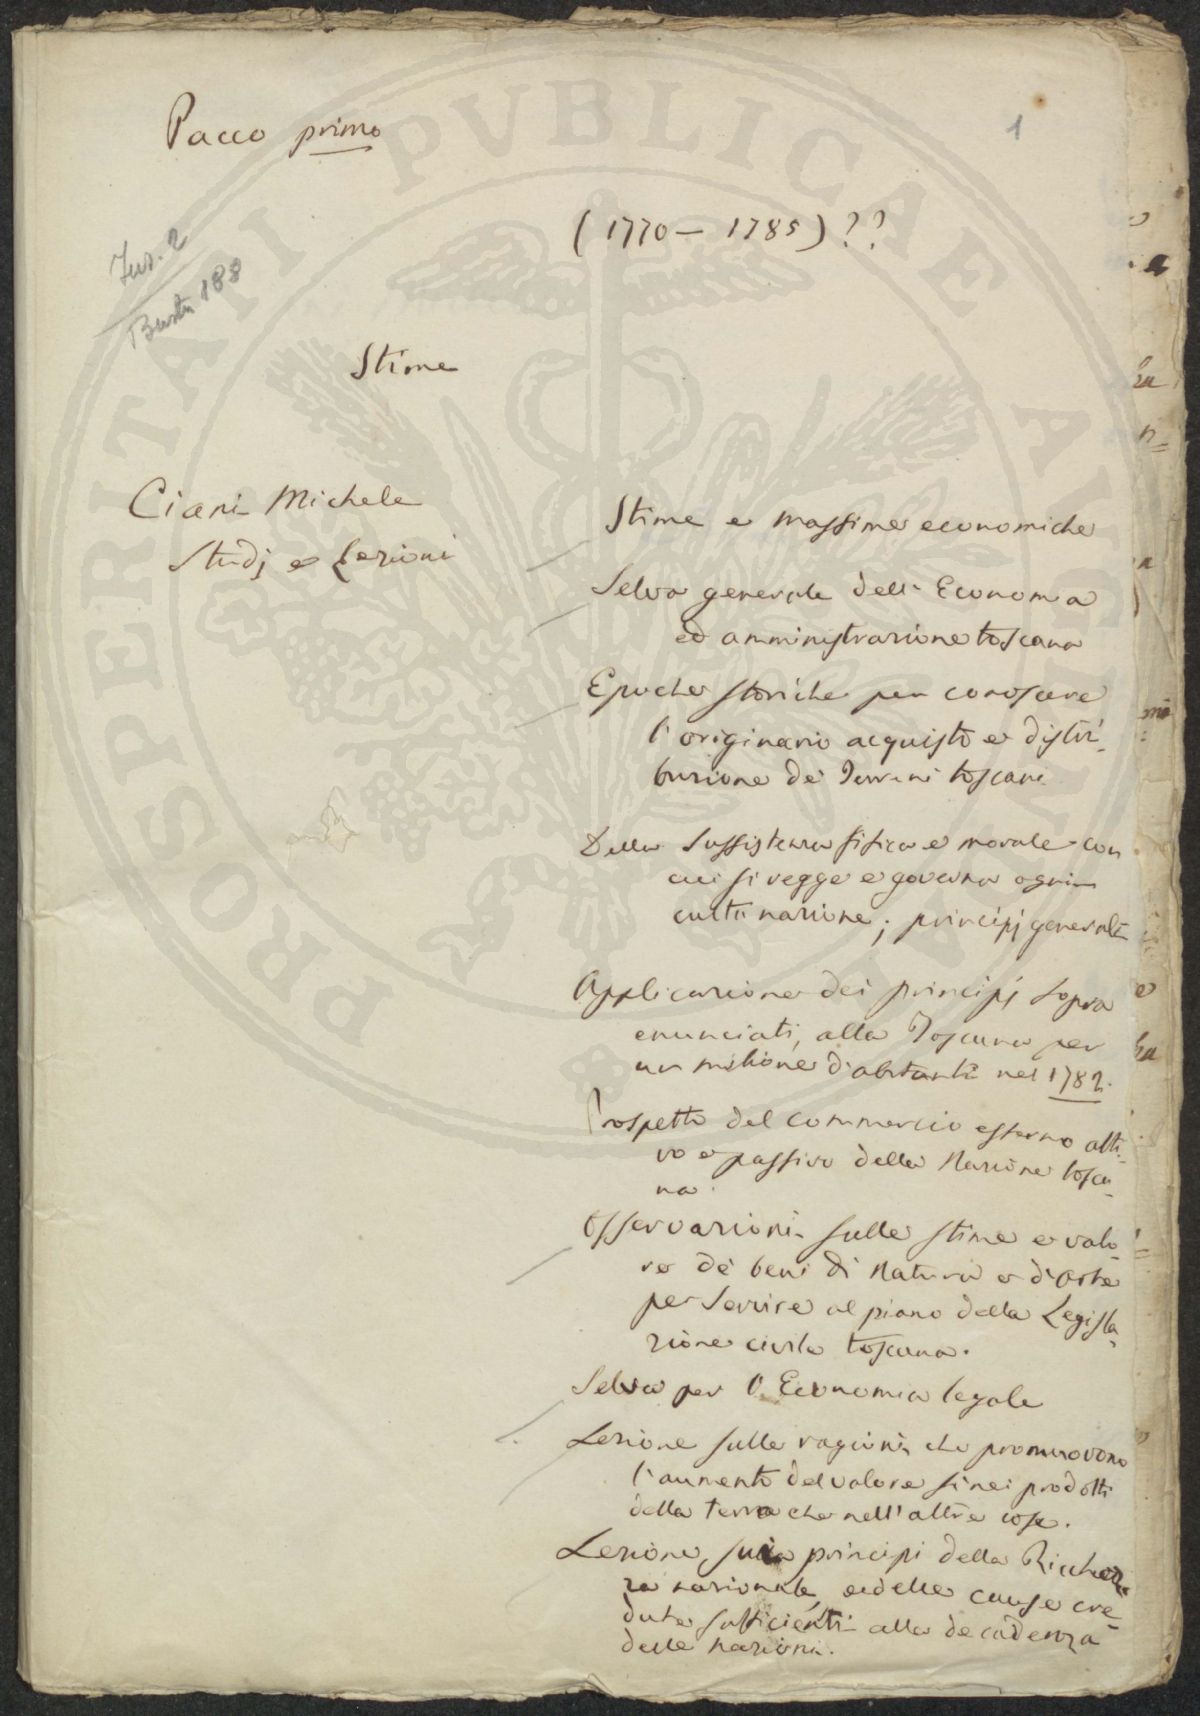 Pacco primo
1
(1770 — 1785) ??
Ins. 2
Busta 188
Stime
Ciani Michele
Studj e Lezioni
Stime e massime economiche
Selva generale dell' Economia
ed amministrazione toscana
Epoche storiche per conoscere
l'originario acquisto e distri-
buzione de' Terreni toscani
Della sussistenza fisica e morale con
cui si regge e governa ogni
culta nazione; principj generali
Applicazione dei principj sopra
enunciati, alla Toscana per
un milione d'abitanti nel 1782.
Prospetto del commercio esterno atti-
vo e passivo della Nazione tosca-
na.
Osservazioni sulle stime e valo-
re de' beni di Natura e d'Arte
per servire al piano della Legisla-
zione civile toscana.
Selva per l'Economia legale
Lezione sulle ragioni che promuovono
l'aumento del valore sì nei prodotti
della terra che nell'altre cose.
Lezione, sui principi della Ricchez-
za nazionale, e delle cause cre-
dute sufficienti alla decadenza
delle nazioni.
PROSPERITATI PVBLICAE AVGENDAE